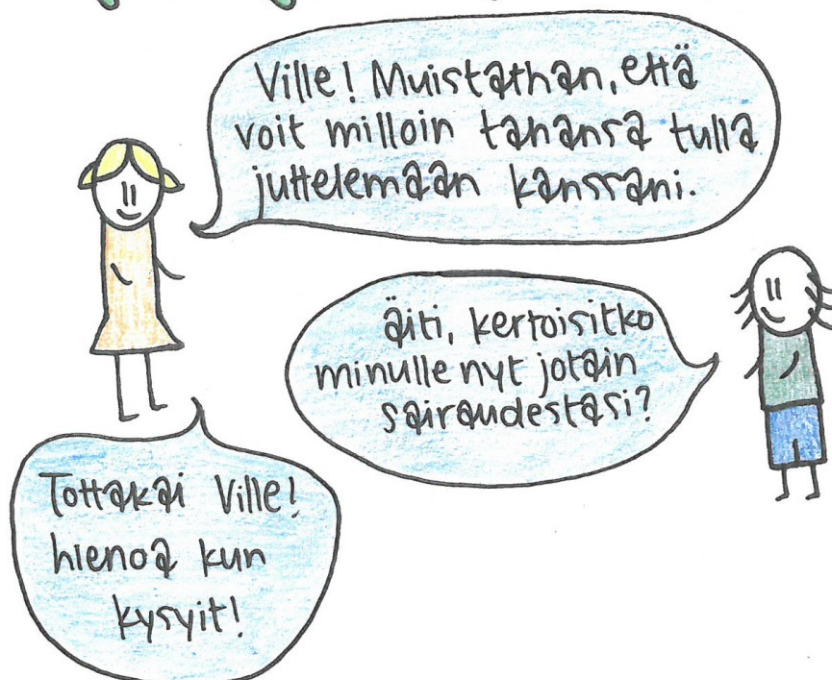 Ville! Muistathan, että
voit milloin tahansa tulla
juttelemaan kanssani.
äiti, kertoisitko
minulle nyt jotain
sairaudestasi?
Tottakai Ville!
hienoa kun
kysyit!